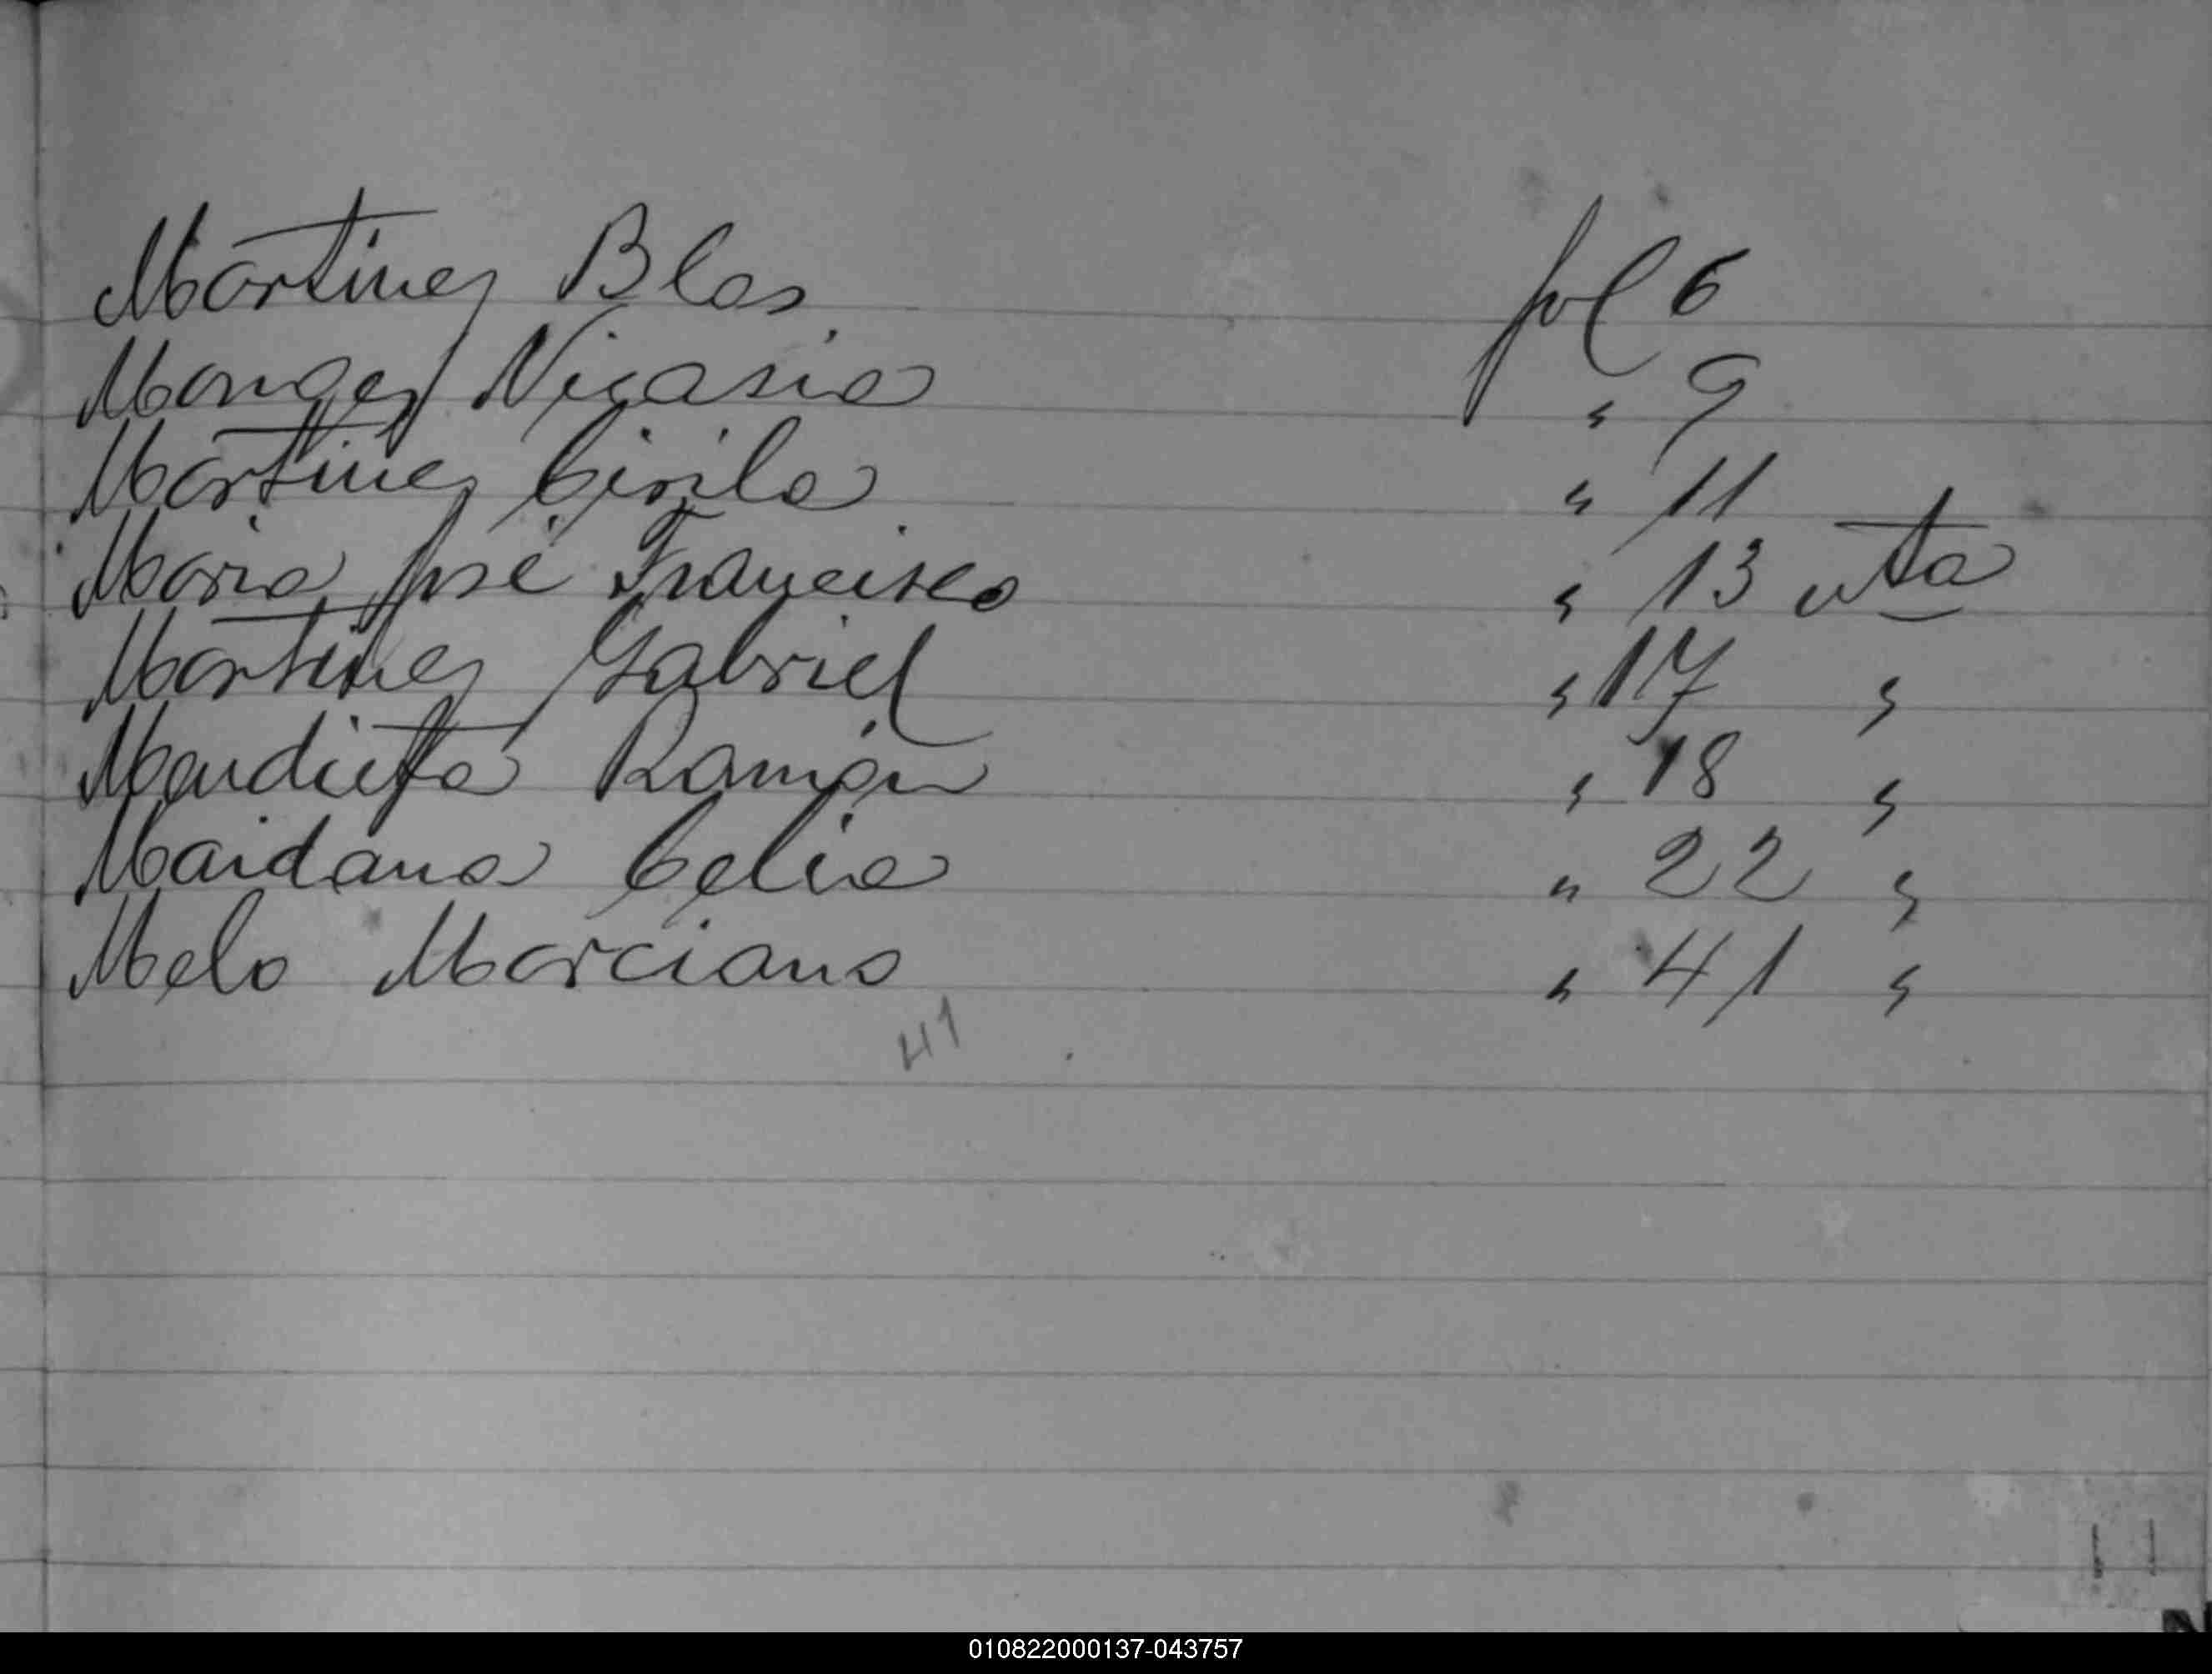 Martinez Blas fol 6
Monges Nicasia " 9
Martinez Cirila " 11
Maria José Francisco " 13 vta
Martinez Gabriel " 17 "
Mendieta Ramón " 18 "
Maidana Celia " 22 "
Melo Marciano " 41 "
41
010822000137-043757